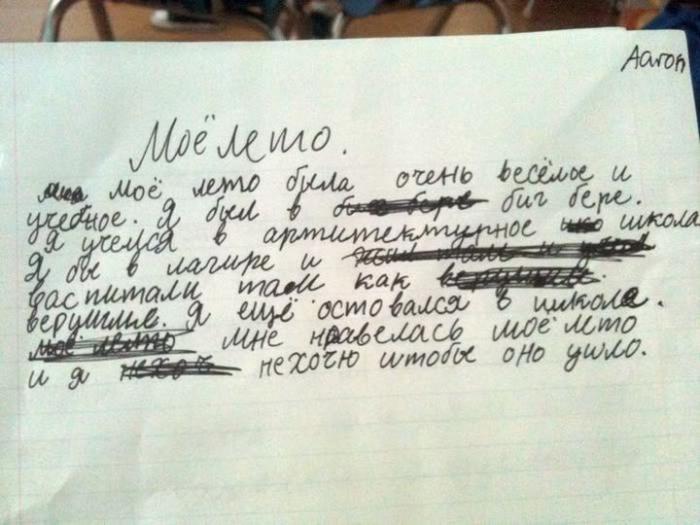 Aaron
Моё лето.
моё лето была очень весёлое и
учебное. Я был в биг бере.
Я учелся в артитектурное школа
Я бы в лагире и
васпитали там как
верушке. Я ещё оставался в школе.
мне нравелась моё лето
и я нехочю штобы оно ушло.